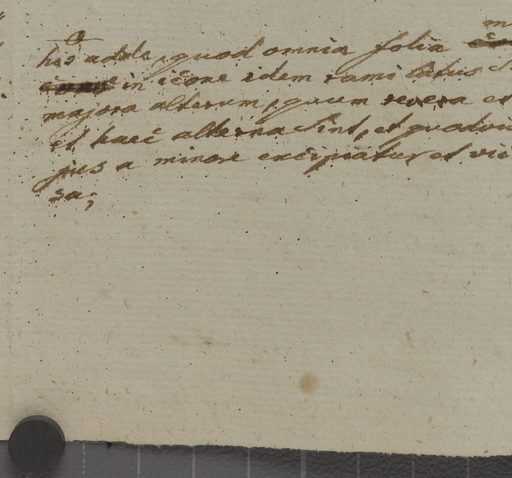 m
his adde, quod omnia folia
in icone idem rami latus
majora alterum, quum revera et
et haec alterna sint, et
jus a minore excipiatur et vi
sa;